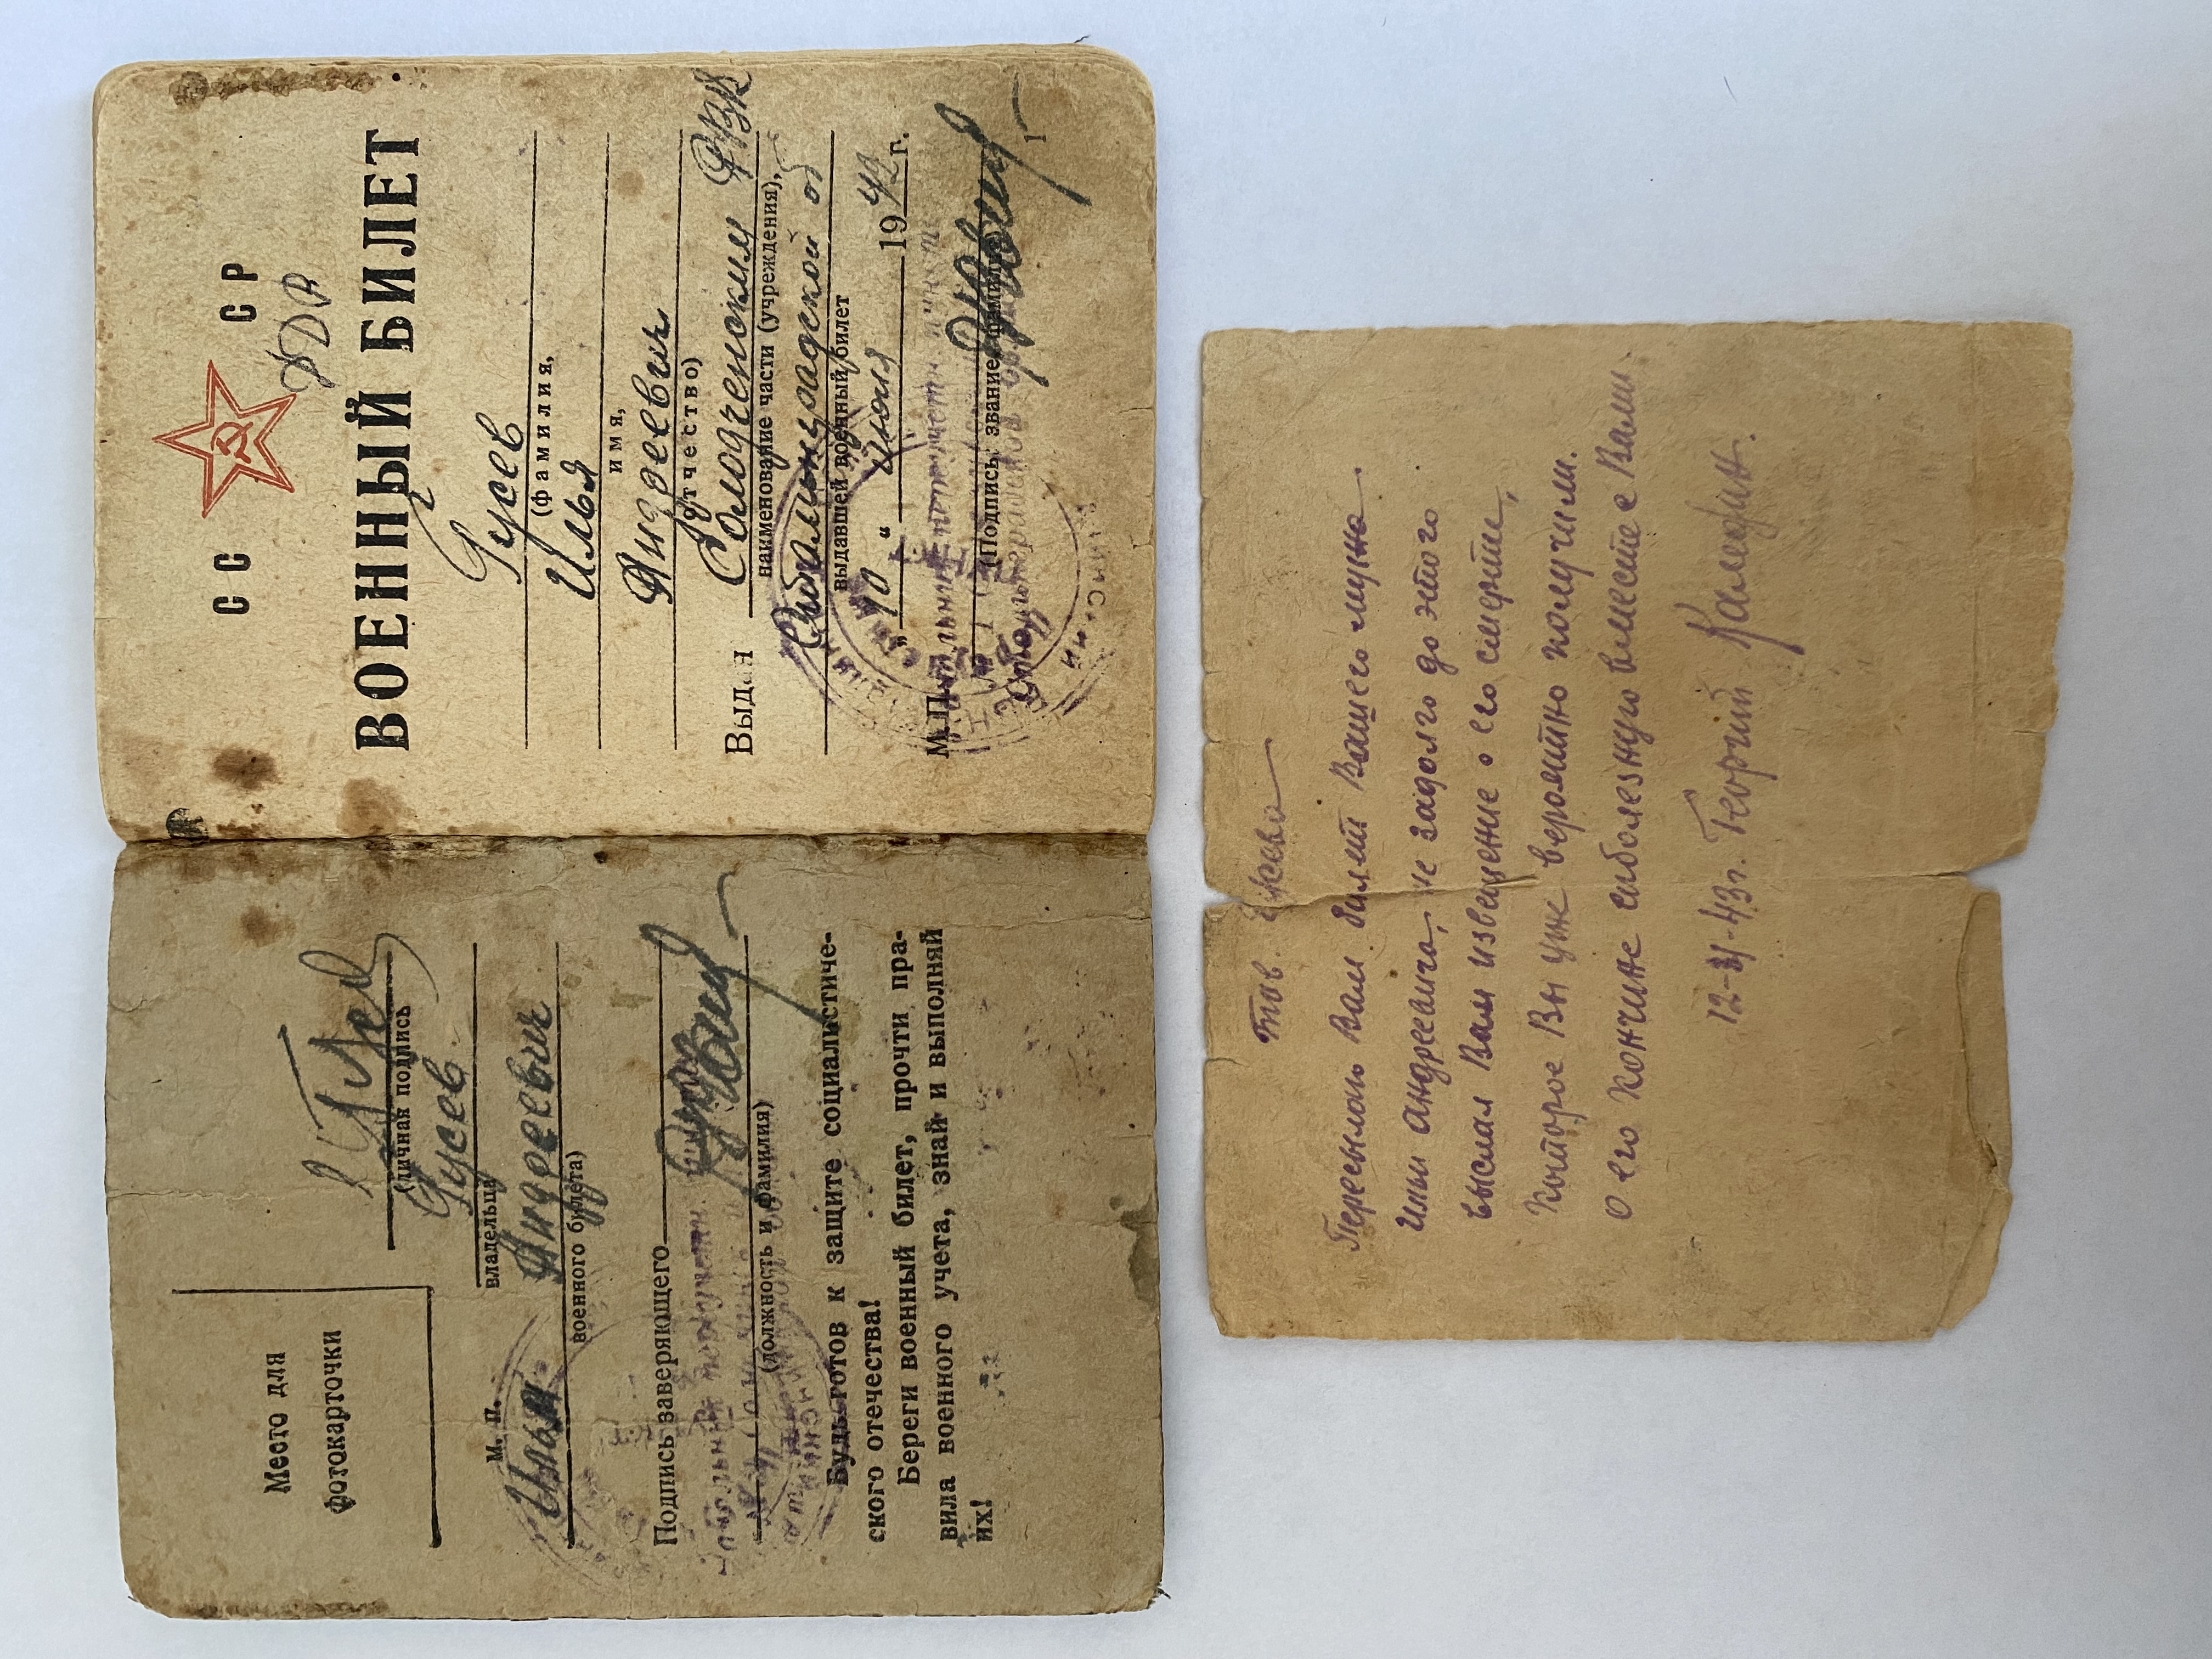 Место для
фотокарточки
(личная подпись
Гусев
владельца
м. п.
Илья Андреевич
военного билета)
Подпись заверяющего
(должность и фамилия)
Будь готов к защите социалистиче-
ского отечества!
Береги военный билет, прочти пра-
вила военного учета, знай и выполняй
их!
СС СР
ВОЕННЫЙ БИЛЕТ
Гусев
(фамилия,
Илья
имя,
Андреевич
отчество)
Выдан Солодченским РВК
наименование части (учреждения),
Сталинградской об
выдавшей военный билет
"10" июля 1942 г.
М.П.
(Подпись, звание
1
Тов. Гусева
Пересылаю Вам билет Вашего мужа
Ильи Андреевича, не задолго до этого
выслал Вам извещение о его смерти,
которое Вы уже вероятно получили.
О его кончине соболезную вместе с Вами.
Георгий